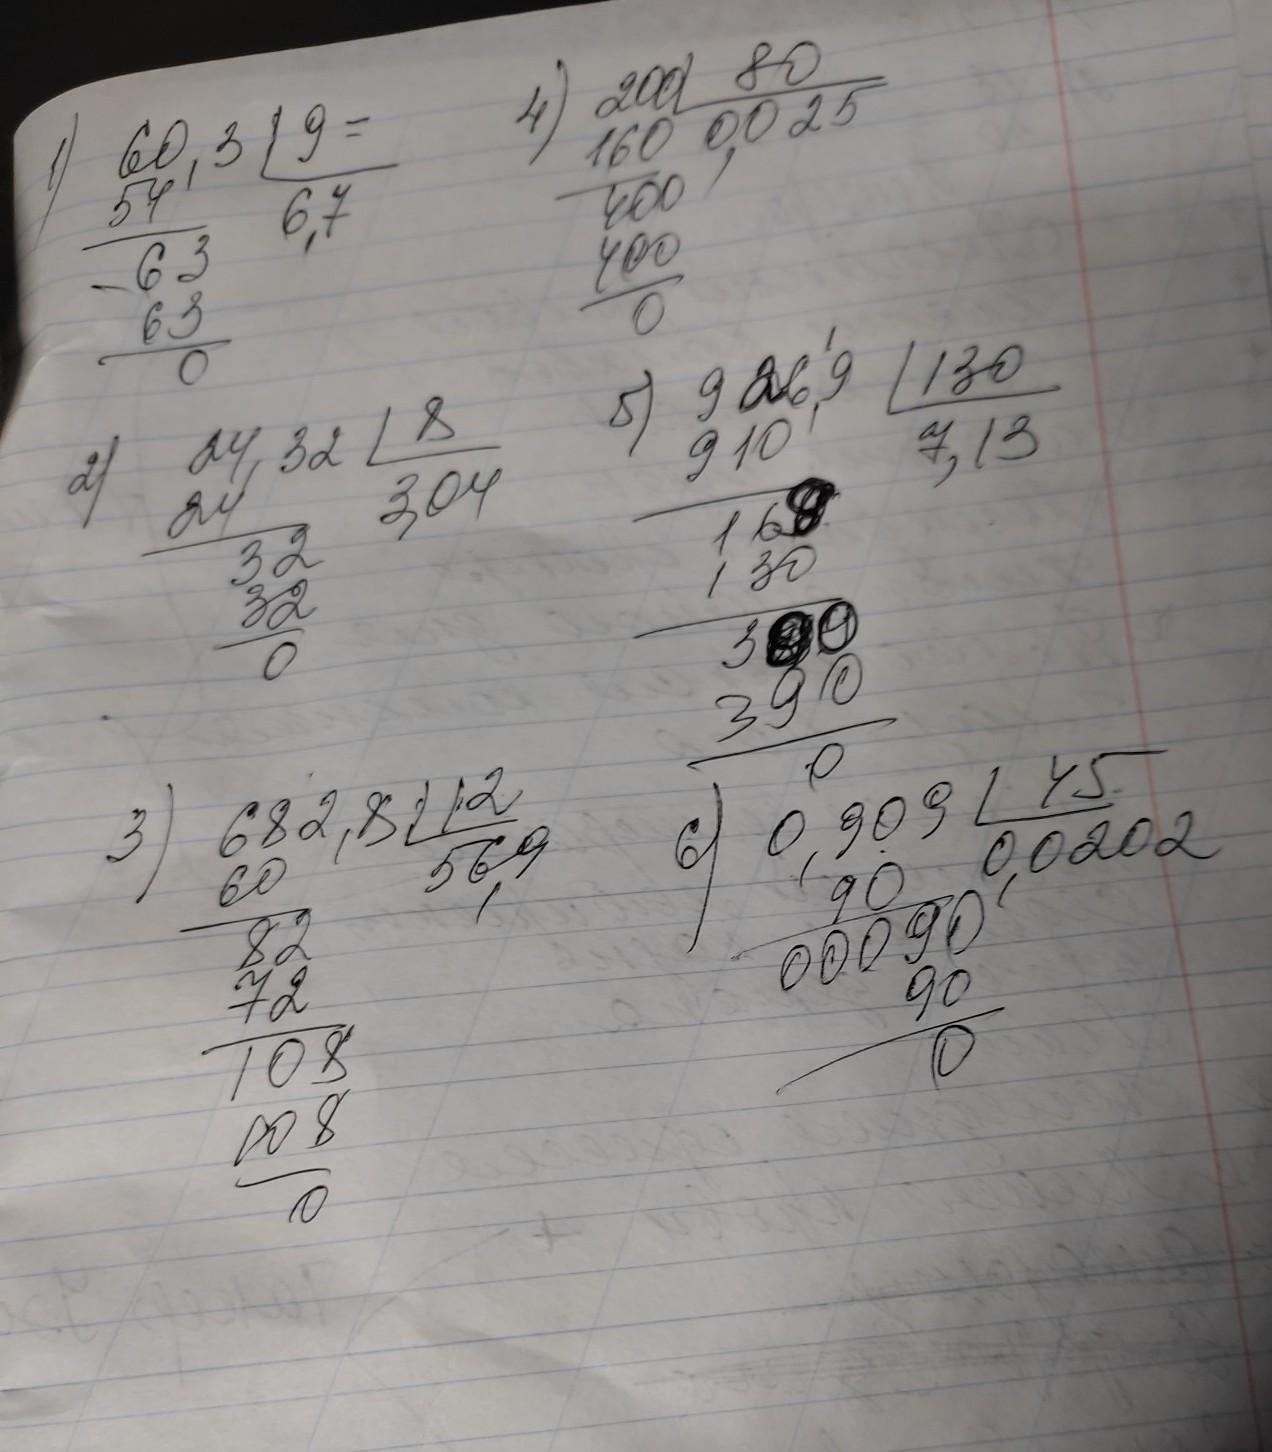 1) 60,3 9=
54
6,7
-63
63
0
2) 24,32 8
24
3,04
32
32
0
3) 682,8 12
60
56,9
82
72
108
108
0
4) 200 80
160 0,0025
400
400
0
5) 926,9 130
910
7,13
169
130
390
390
0
6) 0,909 45
90
0,0202
00090
90
0